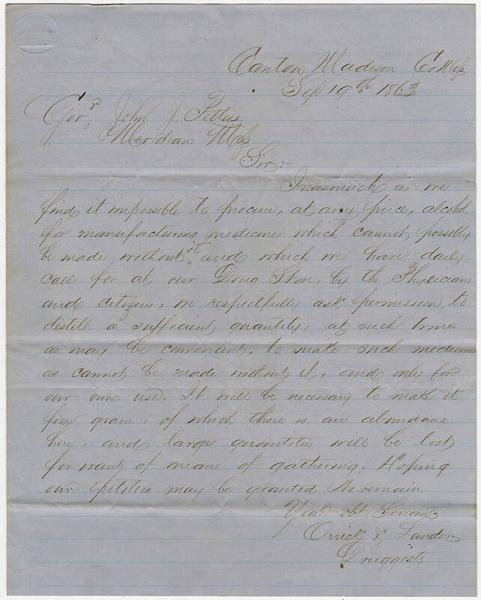 Canton Madison Co Miss
Sep 10th 1863
Govr, John J. Pettus
Meridian Miss
Sir:-
Inasmuch as we
find it impossible to procure, at any price, alcohol
for manufacturing medicines which cannot possibly
be made without it and which we have daily
call for at our Drug Store, by the Physicians
and citizens, we respectfully ask permission to
distill a sufficient quantity, at such times
as may be convenient, to make such medicines
as cannot be made without it, and only for
our own use. It will be necessary to make it
from grain, of which there is an abundance
here, and large quantities will be lost
for want of means of gathering. Hoping
our petition may be granted We remain
Your obt Servants
Orrick &
Druggists